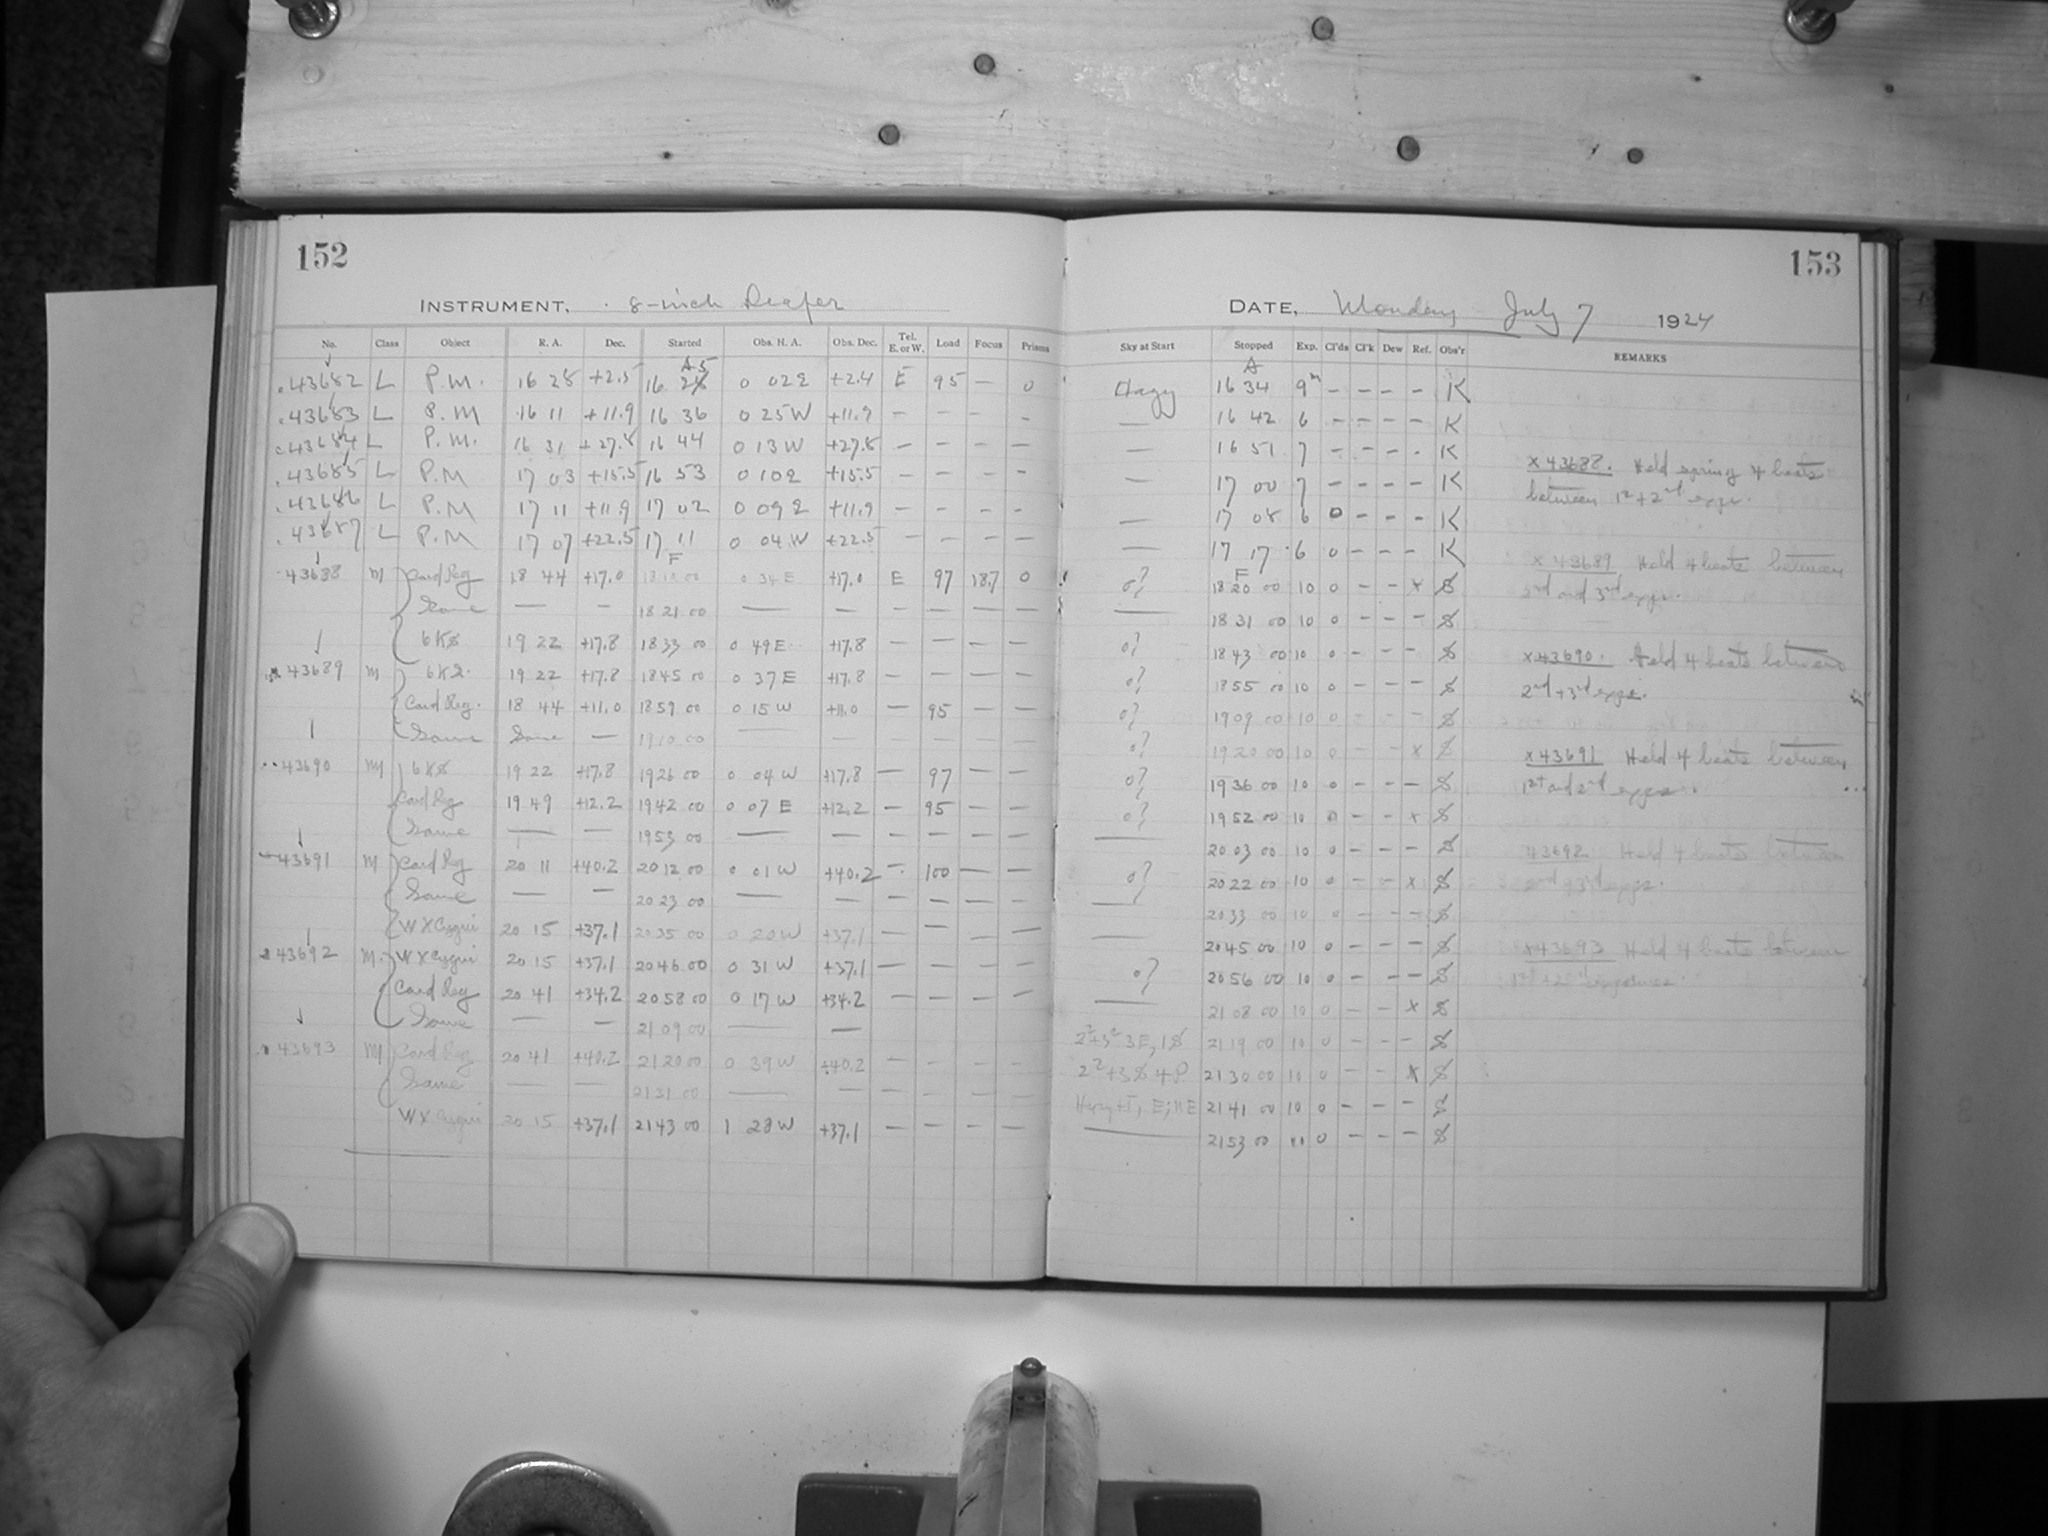 152
INSTRUMENT, 8-inch Draper
No. Class Object R. A. Dec. Started Obs. H. A. Obs. Dec. Tel. E. or W. Load Focus Prisms
43682 L P.M. 16 28 +2.5 16 25 0 02E +2.4 E 95 — 0
43683 L P.M 16 11 +11.9 16 36 0 25W +11.9 — — — —
43684 L P.M. 16 31 +27.8 16 44 0 13W +27.8 — — — —
43685 L P.M 17 03 +15.5 16 53 0 10E +15.5 — — — —
43686 L P.M 17 11 +11.9 17 02 0 09E +11.9 — — — —
43687 L P.M 17 07 +22.5 17 11 0 04W +22.5 — — — —
43688 M Card Reg 18 44 +17.0 18 10 00 0 34E +17.0 E 97 18.7 0
Same — — 18 21 00 — — — — — —
19 22 +17.8 18 33 00 0 49E +17.8 — — — —
43689 M 19 22 +17.8 18 45 00 0 37E +17.8 — — — —
Card Reg. 18 44 +11.0 18 59 00 0 15W +11.0 — 95 — —
Same Same — 19 10 00 — — — — — —
43690 M 19 22 +17.8 19 26 00 0 04W +17.8 — 97 — —
Card Reg 19 49 +12.2 19 42 00 0 07E +12.2 — 95 — —
Same — — 19 53 00 — — — — — —
43691 M Card Reg 20 11 +40.2 20 12 00 0 01W +40.2 — 100 — —
Same — — 20 23 00 — — — — — —
WX Cygni 20 15 +37.1 20 35 00 0 20W +37.1 — — — —
43692 M WX Cygni 20 15 +37.1 20 46 00 0 31W +37.1 — — — —
Card Reg 20 41 +34.2 20 58 00 0 17W +34.2 — — — —
Same — — 21 09 00 — —
43693 M Card Reg 20 41 +40.2 21 20 00 0 39W +40.2 — — — —
Same — — 21 31 00 — — — — — —
WX Cygni 20 15 +37.1 21 43 00 1 28W +37.1 — — — —
153
DATE, Monday July 7 1924
Sky at Start Stopped Exp. Cl'ds Cl'k Dew Ref. Obs'r REMARKS
Hazy 16 34 9m — — — — K
— 16 42 6 — — — — K
— 16 51 7 — — — — K
— 17 00 7 — — — — K
— 17 08 6 0 — — — K
— 17 17 6 0 — — — K
0? 18 20 00 10 0 — — x S
— 18 31 00 10 0 — — — S
0? 18 43 00 10 0 — — — S
0? 18 55 00 10 0 — — — S
0? 19 09 00 10 0 — — — S
0? 19 20 00 10 0 — — x S
0? 19 36 00 10 0 — — — S
0? 19 52 00 10 0 — — x S
— 20 03 00 10 0 — — — S
0? 20 22 00 10 0 — — x S
— 20 33 00 10 0 — — — S
— 20 45 00 10 0 — — — S
0? 20 56 00 10 0 — — — S
— 21 08 00 10 0 — — x S
21 19 00 10 0 — — — S
21 30 00 10 0 — — x S
21 41 00 10 0 — — — S
— 21 53 00 10 0 — — — S
x 43688. Held spring 4 beats
between 1st + 2nd exps.
x 43689 Held 4 beats between
2nd and 3rd exps.
x 43690. Held 4 beats between
2nd + 3rd exps.
x 43691 Held 4 beats between
1st and 2nd exps.
43692 Held 4 beats between
2nd + 3rd exps.
x 43693 Held 4 beats between
1st + 2nd exposures.